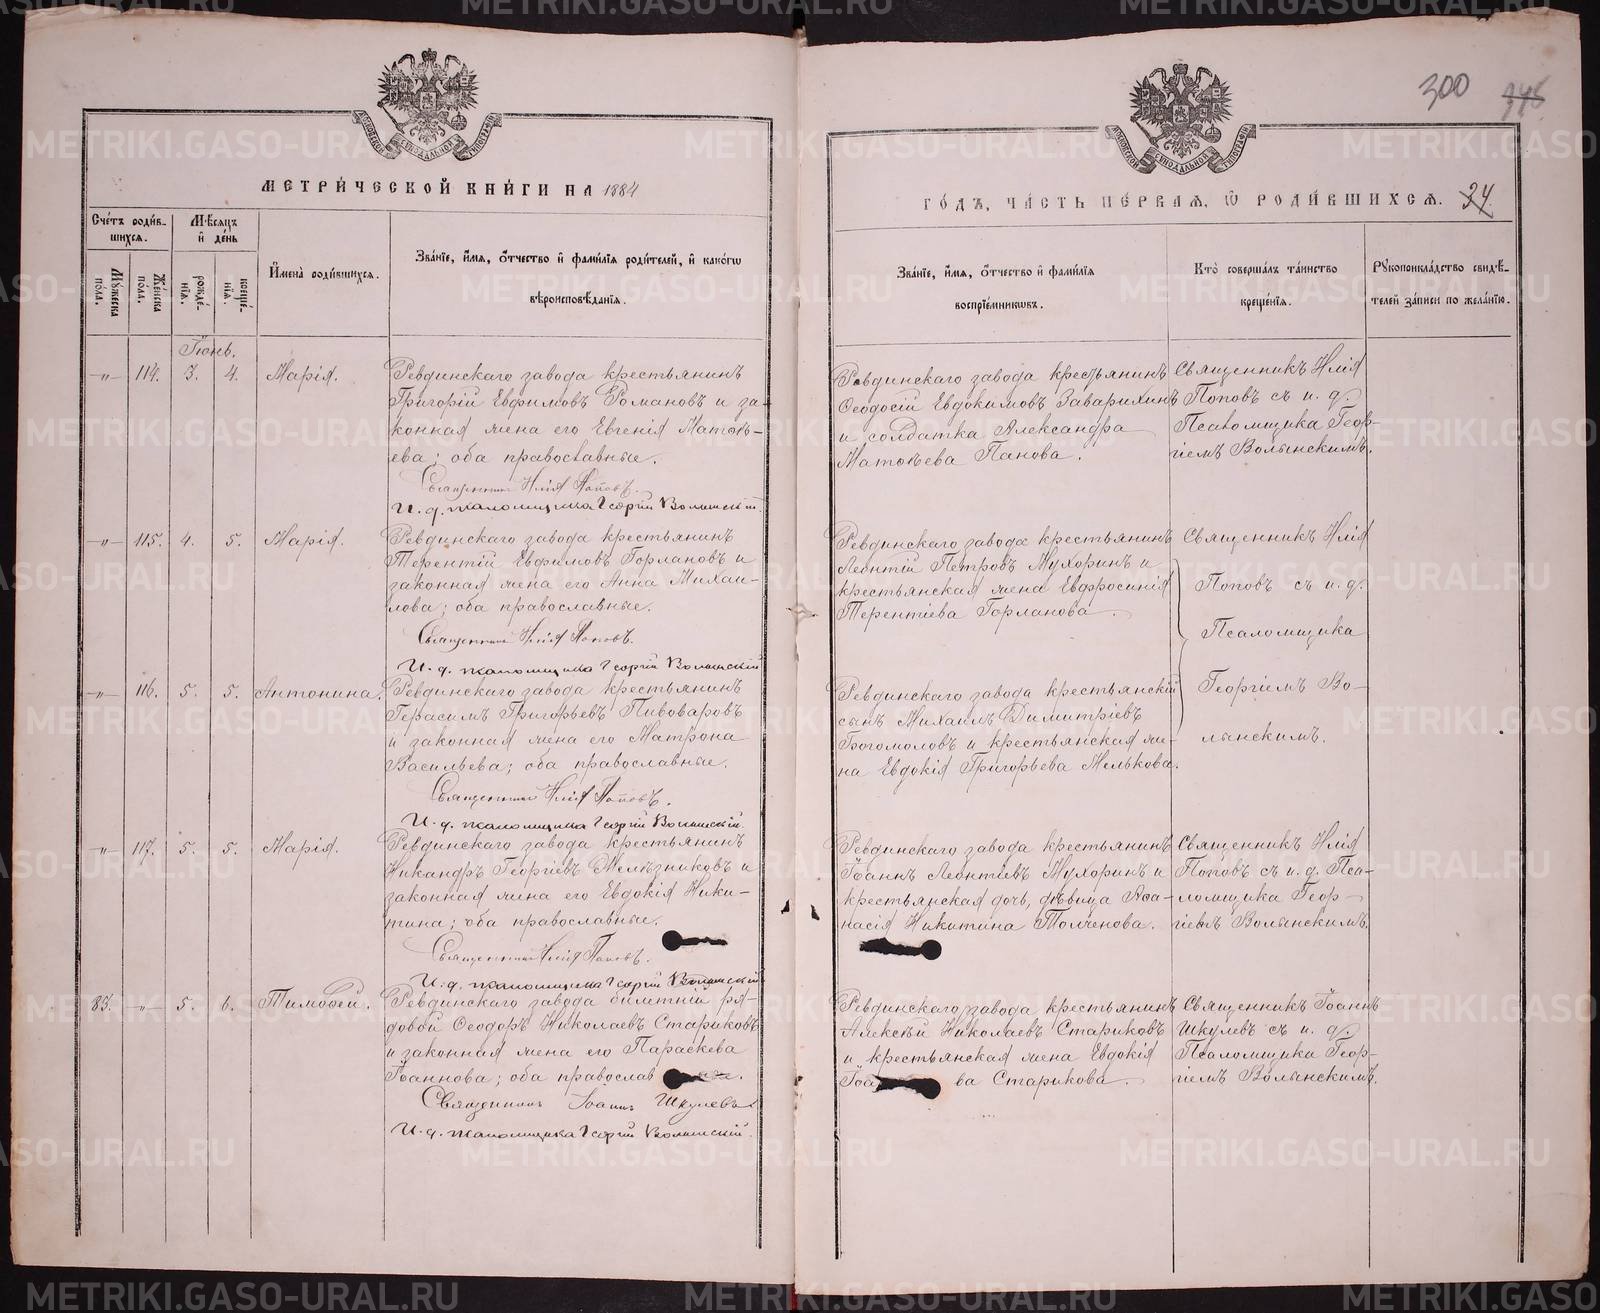 300
МЕТРИ́ЧЕСКОЙ КНИ́ГИ НА 1884
ГО́ДЪ, ЧА́СТЬ ПЕ́РВАЯ, Ѡ РОДИ́ВШИХСЯ. 24
Сче́тъ роди́в-
шихся.
Мѣ́сяцъ
и́ де́нь
Мꙋ́жеска по́ла.
Же́нска по́ла.
рожде́-
нїѧ.
креще́-
нїѧ.
И́мена̀ роди́вшихся.
Зва́нїе, и́мя, ѻ́тчество и́ фами́лїя роди́телей, и́ како́гѡ
вѣроисповѣ́данїя.
Зва́нїе, и́мя, ѻ́тчество и́ фами́лїя
воспрїе́мникѡвъ.
Кто̀ соверша́лъ та́инство
креще́нїя.
Рꙋкоприкла́дство свидѣ́-
телей за́писи по жела́нїю.
Іюнь.
–„– 114. 3. 4. Марія.
Ревдинскаго завода крестьянинъ
Григорій Евфимовъ Романовъ и за-
конная жена его Евгенія Матѳѣ-
ева; оба православные.
Священникъ Илія Поповъ.
И. д. псаломщика Георгій Волынскій.
Ревдинскаго завода крестьянинъ
Ѳеодосій Евдокимовъ Заварихинъ
и солдатка Александра
Матѳѣева Панова.
Священникъ Илія
Поповъ съ и. д.
Псаломщика Геор-
гіемъ Волынскимъ.
–„– 115. 4. 5. Марія.
Ревдинскаго завода крестьянинъ
Терентій Евфимовъ Горлановъ и
законная жена его Анна Михаи-
лова; оба православные.
Священникъ Илія Поповъ.
И. д. псаломщика Георгій Волынскій
Ревдинскаго завода крестьянинъ
Леонтій Петровъ Мухоринъ и
крестьянская жена Евфросинія
Терентіева Горланова.
Священникъ Илія
Поповъ съ и. д.
Псаломщика
Георгіемъ Во-
лынскимъ.
–„– 116. 5. 5. Антонина.
Ревдинскаго завода крестьянинъ
Герасимъ Григорьевъ Пивоваровъ
и законная жена его Матрона
Васильева; оба православные.
Священникъ Илія Поповъ.
И. д. псаломщика Георгій Волынскій.
Ревдинскаго завода крестьянскій
сынъ Михаилъ Димитріевъ
Богомоловъ и крестьянская же-
на Евдокія Григорьева Мелькова.
–„– 117. 5. 5. Марія.
Ревдинскаго завода крестьянинъ
Никандръ Георгіевъ Желѣзниковъ и
законная жена его Евдокія Ники-
тина; оба православные.
Священникъ Илія Поповъ.
И. д. псаломщика Георгій Волынскій
Ревдинскаго завода крестьянинъ
Іоаннъ Леонтіевъ Мухоринъ и
крестьянская дочь, дѣвица Аѳа-
насія Никитина Толченова.
Священникъ Илія
Поповъ съ и. д. Пса-
ломщика Геор-
гіемъ Волынскимъ.
83. –„– 5. 6. Тимоѳей.
Ревдинскаго завода билетній ря-
довой Ѳеодоръ Николаевъ Стариковъ
и законная жена его Параскева
Іоаннова; оба православ
Священникъ Іоаннъ Шкулевъ
И. д. псаломщика Георгій Волынскій.
Ревдинскаго завода крестьянинъ
Алексѣй Николаевъ Стариковъ
и крестьянская жена Евдокія
Іоа ва Старикова.
Священникъ Іоаннъ
Шкулевъ съ и. д.
Псаломщика Геор-
гіемъ Волынскимъ.
METRIKI.GASO-URAL.RU